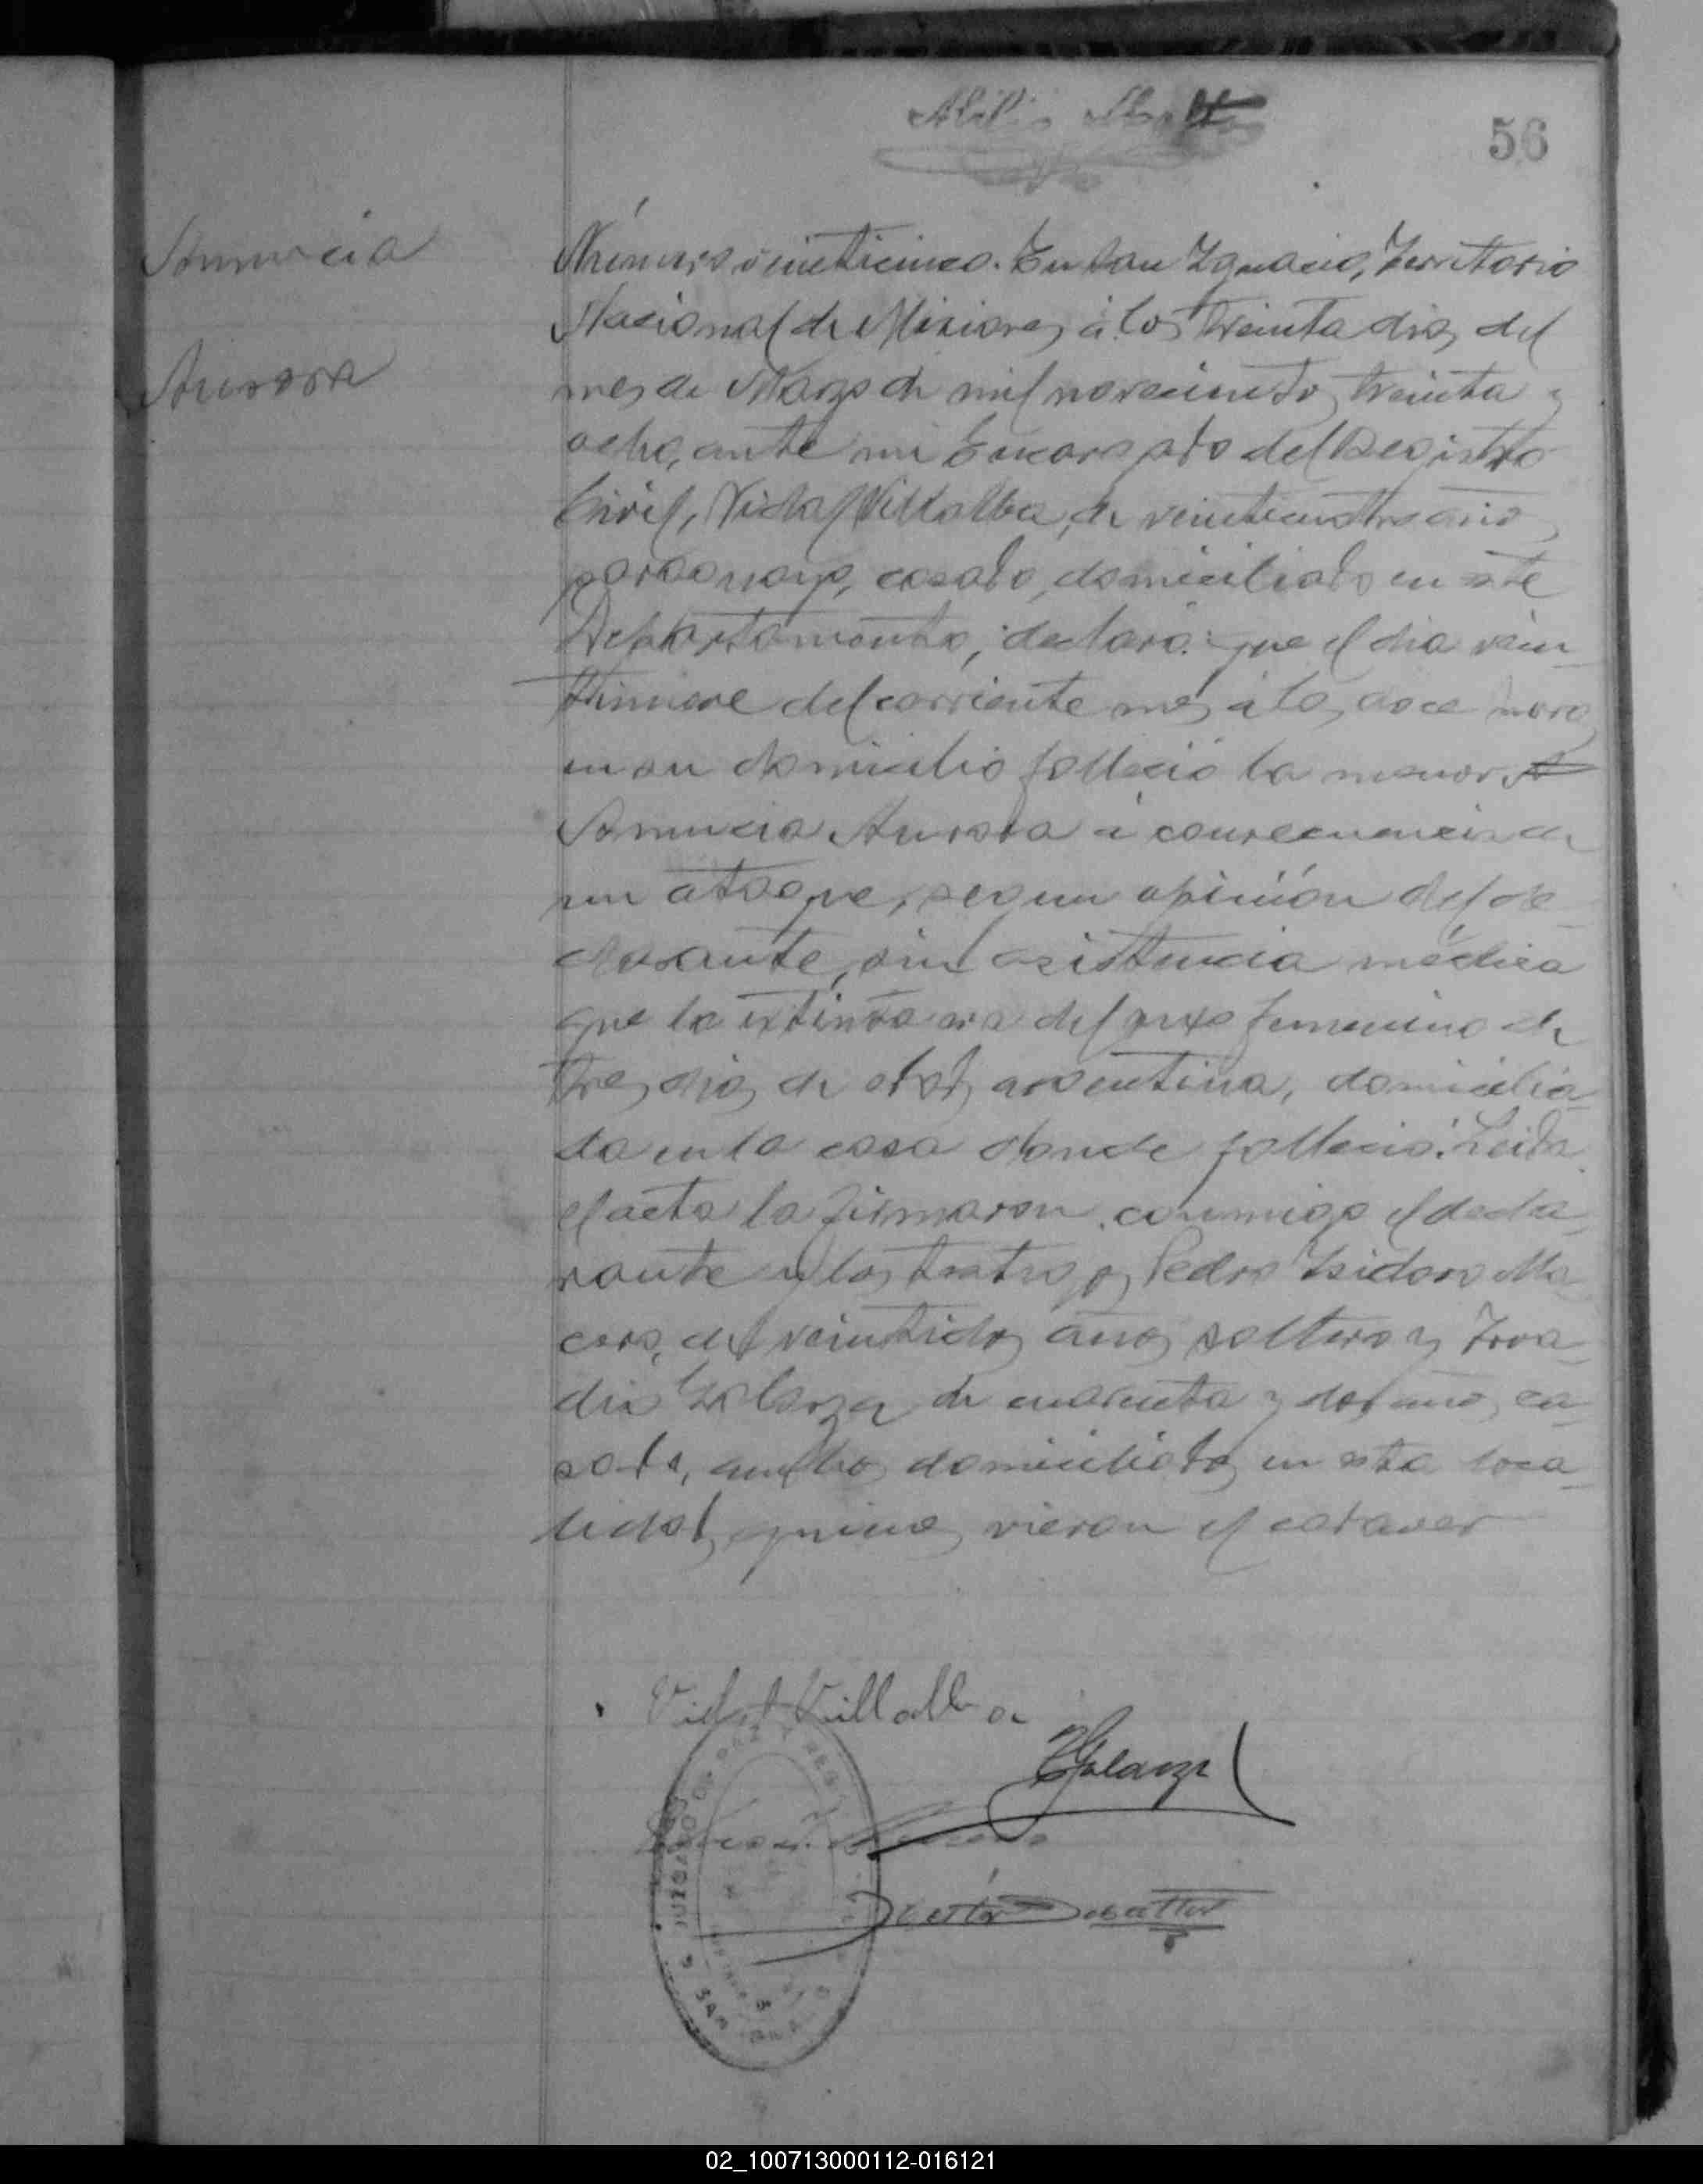 56
Anuncia
Aurora
Número veinticinco. En San Ygnacio, Territorio
Nacional de Misiones, á los treinta dias del
mes de Marzo de mil novecientos treinta y
ocho, ante mi Encargado del Registro
Civil, Vidal Villalba, de veinticuatro años
paraguayo, casado, domiciliado en este
Departamento, declaró: que el dia vein-
tinueve del corriente mes á las doce horas
en su domicilio falleció la menor
Anuncia Aurora á consecuencia de
un ataque, segun opinión del de-
clarante, sin asistencia médica
que la extinta era del sexo femenino de
tres dias de edad, argentina, domicilia-
da en la casa donde falleció. Leida
el acta la firmaron conmigo el decla-
rante y los testigos Pedro Isidoro Ma-
de veintidos años soltero y
de cuarenta y dos años, ca-
sado, ambos domiciliados en esta loca-
lidad, quienes vieron el cadaver
Vidal Villalba
JUZGADO DE PAZ Y
SAN
02_100713000112-016121